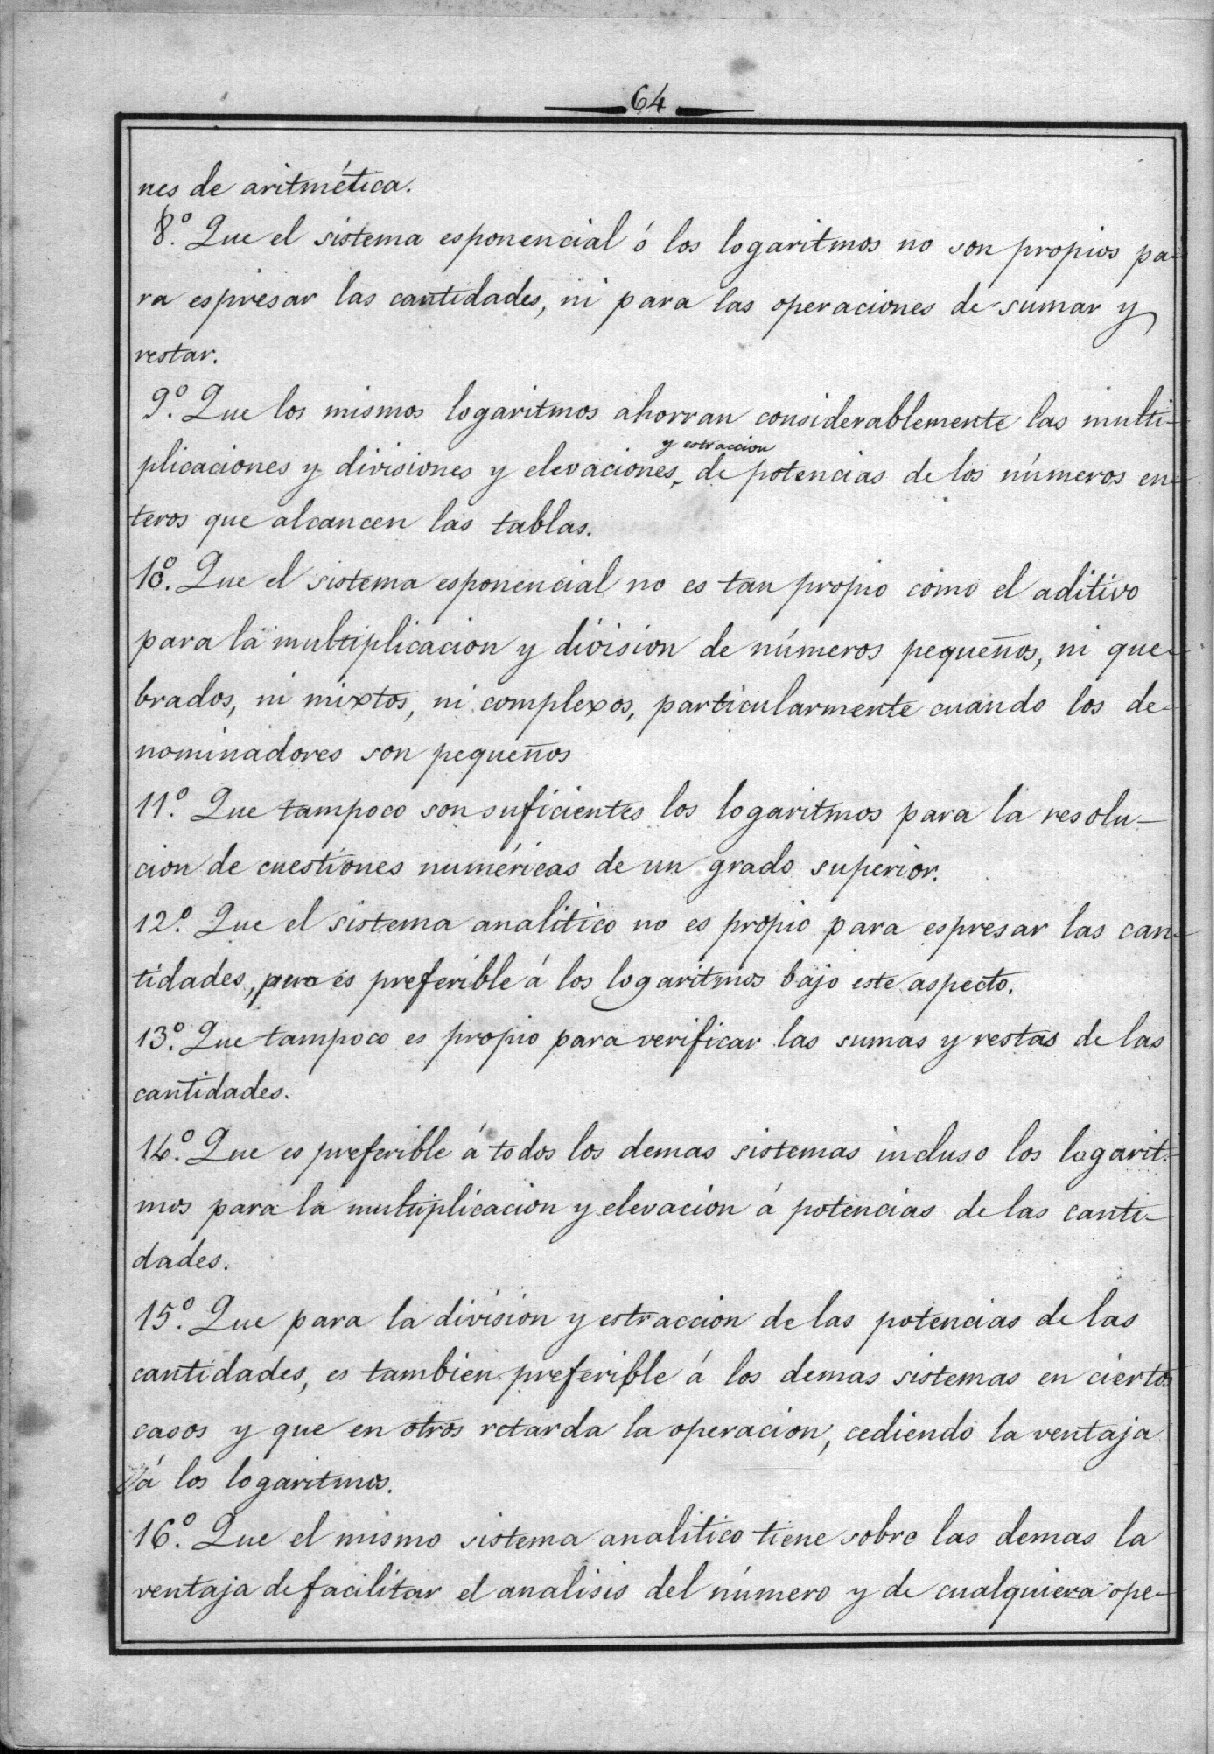 64
nes de aritmética.
8.º Que el sistema esponencial ó los logaritmos no son propios pa-
ra espresar las cantidades, ni para las operaciones de sumar y
restar.
9.º Que los mismos logaritmos ahorran considerablemente las multi-
y estraccion
plicaciones y divisiones y elevaciones, de potencias de los números en-
teros que alcancen las tablas.
10.º Que el sistema esponencial no es tan propio como el aditivo
para la multiplicacion y division de números pequeños, ni que-
brados, ni mixtos, ni complexos, particularmente cuando los de-
nominadores son pequeños
11.º Que tampoco son suficientes los logaritmos para la resolu-
cion de cuestiones numéricas de un grado superior.
12.º Que el sistema analitico no es propio para espresar las can-
tidades, pero es preferible á los logaritmos bajo este aspecto.
13.º Que tampoco es propio para verificar las sumas y restas de las
cantidades.
14.º Que es preferible á todos los demas sistemas incluso los logarit-
mos para la multiplicacion y elevacion á potencias de las canti-
dades.
15.º Que para la division y estraccion de las potencias de las
cantidades, es tambien preferible á los demas sistemas en ciertos
casos y que en otros retarda la operacion, cediendo la ventaja
á los logaritmos.
16.º Que el mismo sistema analitico tiene sobre las demas la
ventaja de facilitar el analisis del número y de cualquiera ope-